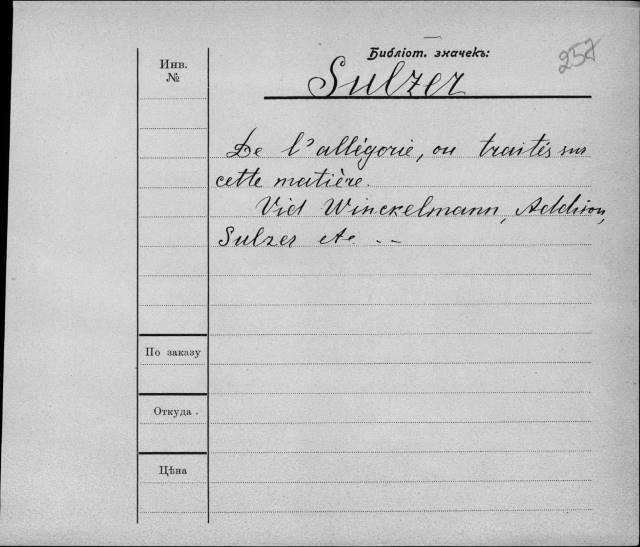 Библіот. значекъ:
257
Инв.
№
Sulzer
De l'allégorie, ou traités sur
cette matière.
Vid Winckelmann, Addison,
Sulzer etc --
По заказу
Откуда.
Цѣна